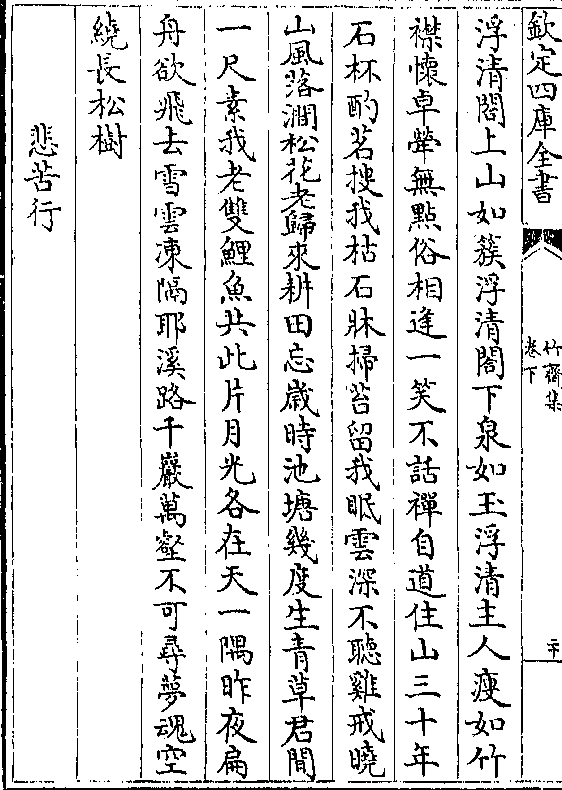 欽定四庫全書
竹齋集
卷下
二十
浮清閣上山如簇浮清閣下泉如玉浮清主人瘦如竹
襟懷卓犖無點俗相逢一笑不話禪自道住山三十年
石杯酌茗搜我枯石牀掃苔留我眠雲深不聽雞戒曉
山風落澗松花老歸來耕田忘歲時池塘幾度生青草君間
一尺素我老雙鯉魚共此片月光各在天一隅昨夜扁
舟欲飛去雪雲凍隔耶溪路千巖萬壑不可尋夢魂空
繞長松樹
悲苦行